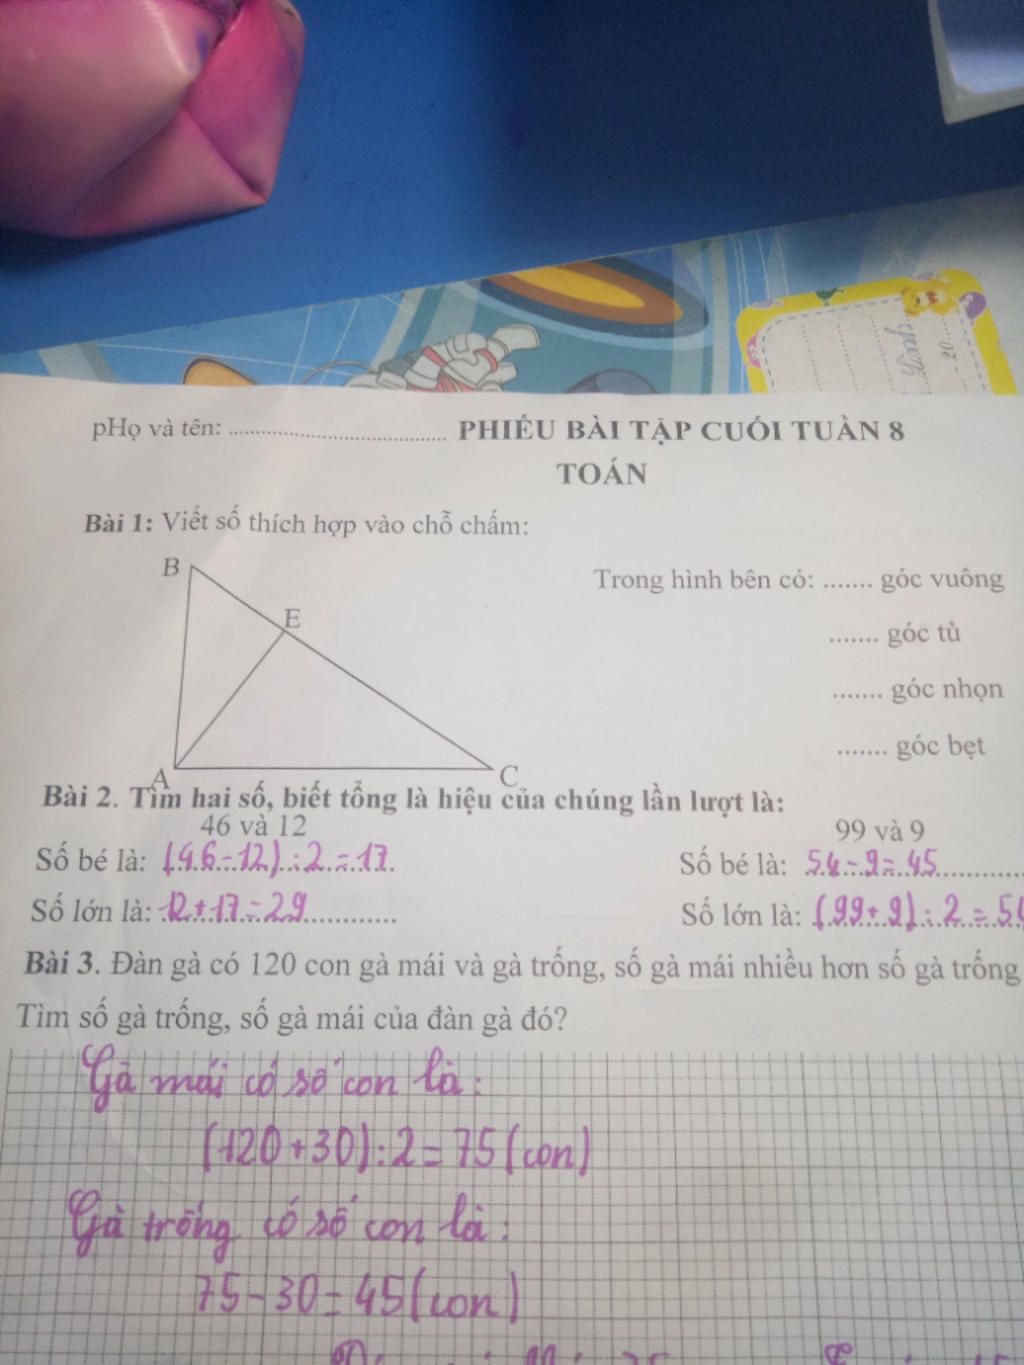 Linh
20......
pHọ và tên: ........................ PHIẾU BÀI TẬP CUỐI TUẦN 8
TOÁN
Bài 1: Viết số thích hợp vào chỗ chấm:
B
E
A
C
Trong hình bên có: ....... góc vuông
....... góc tù
....... góc nhọn
....... góc bẹt
Bài 2. Tìm hai số, biết tổng là hiệu của chúng lần lượt là:
46 và 12
99 và 9
Số bé là: (46-12):2=17
Số bé là: 54-9=45
Số lớn là: 12+17=29
Số lớn là: (99+9):2=54
Bài 3. Đàn gà có 120 con gà mái và gà trống, số gà mái nhiều hơn số gà trống
Tìm số gà trống, số gà mái của đàn gà đó?
Gà mái có số con là:
(120+30):2=75(con)
Gà trống có số con là:
75-30=45(con)